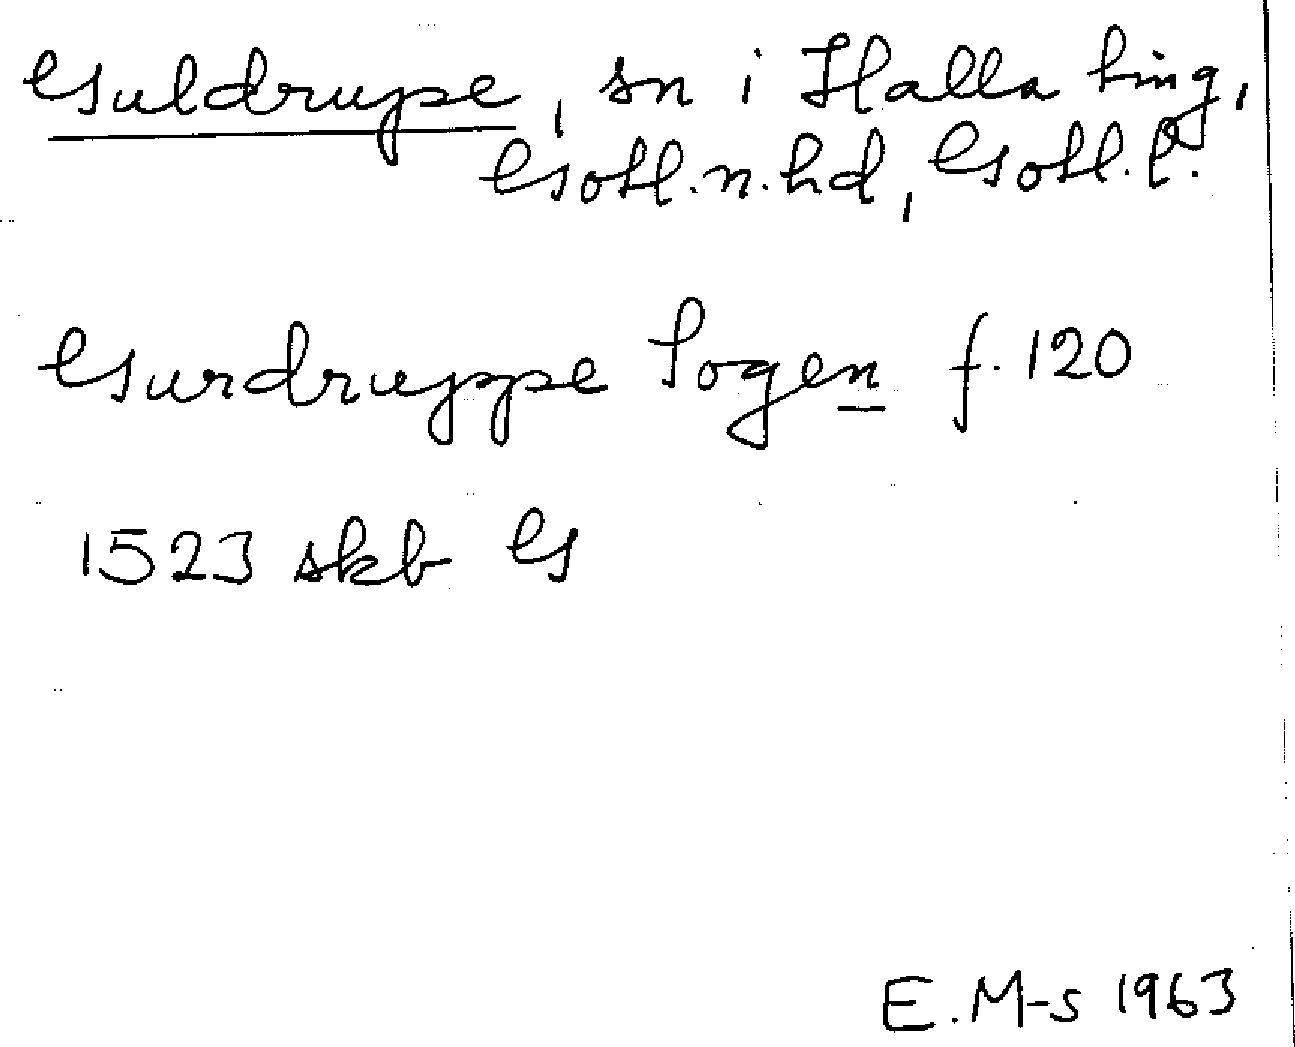 Guldrupe, sn i Halla ting,
Gotl. n. hd, Gotl. l.
Gurdruppe Sogen f. 120
1523 skb G
E. M-s 1963